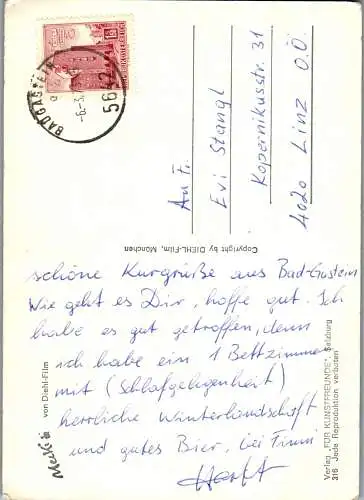 BADGASTEIN
-6.-3.
5642
REPUBLIK ÖSTERREICH
An Fr.
Evi Stangl
Kopernikusstr. 31
4020 Linz O.Ö.
Copyright by DIEHL-Film, München
schöne Kurgrüße aus Bad-Gastein
Wie geht es Dir, hoffe gut. Ich
habe es gut getroffen, denn
ich habe ein 1 Bettzimmer
mit (Schlafgelegenheit)
herrliche Winterlandschaft
und gutes Bier, bei Finni
Mecki
von Diehl-Film
Verlag „FÜR KUNSTFREUNDE", Salzburg
316 Jede Reproduktion verboten